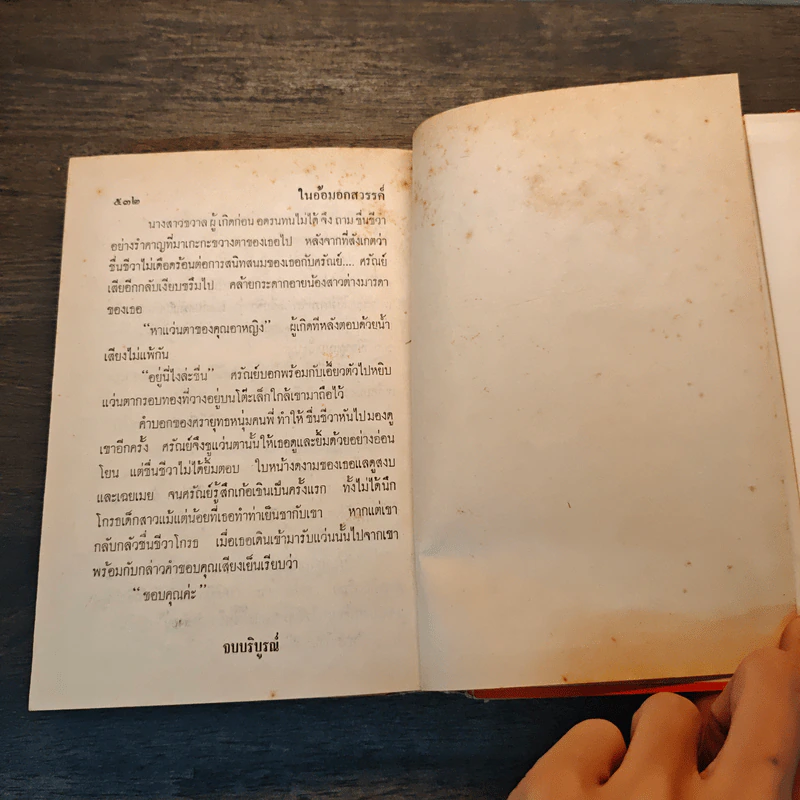 ๕๓๒ ในอ้อมอกสวรรค์
นางสาวชวาล ผู้เกิดก่อน อดรนทนไม่ได้ จึง ถาม ชื่นชีวา
อย่างรำคาญที่มาเกะกะขวางตาของเธอไป หลังจากที่สังเกตว่า
ชื่นชีวาไม่เดือดร้อนต่อการสนิทสนมของเธอกับศรัณย์.... ศรัณย์
เสียอีกกลับเงียบขรึมไป คล้ายกระดากอายน้องสาวต่างมารดา
ของเธอ
“หาแว่นตาของคุณอาหญิง” ผู้เกิดทีหลังตอบด้วยน้ำ
เสียงไม่แพ้กัน
“อยู่นี่ไงล่ะชื่น” ศรัณย์บอกพร้อมกับเอี้ยวตัวไปหยิบ
แว่นตากรอบทองที่วางอยู่บนโต๊ะเล็กใกล้เขามาถือไว้
คำบอกของศรายุทธหนุ่มคนพี่ ทำให้ ชื่นชีวาหันไปมองดู
เขาอีกครั้ง ศรัณย์จึงชูแว่นตานั้นให้เธอดูและยิ้มด้วยอย่างอ่อน
โยน แต่ชื่นชีวาไม่ได้ยิ้มตอบ ใบหน้างดงามของเธอแลดูสงบ
และเฉยเมย จนศรัณย์รู้สึกเก้อเขินเป็นครั้งแรก ทั้งไม่ได้นึก
โกรธเด็กสาวแม้แต่น้อยที่เธอทำท่าเย็นชากับเขา หากแต่เขา
กลับกลัวชื่นชีวาโกรธ เมื่อเธอเดินเข้ามารับแว่นนั้นไปจากเขา
พร้อมกับกล่าวคำขอบคุณเสียงเย็นเรียบว่า
“ขอบคุณค่ะ”
จบบริบูรณ์